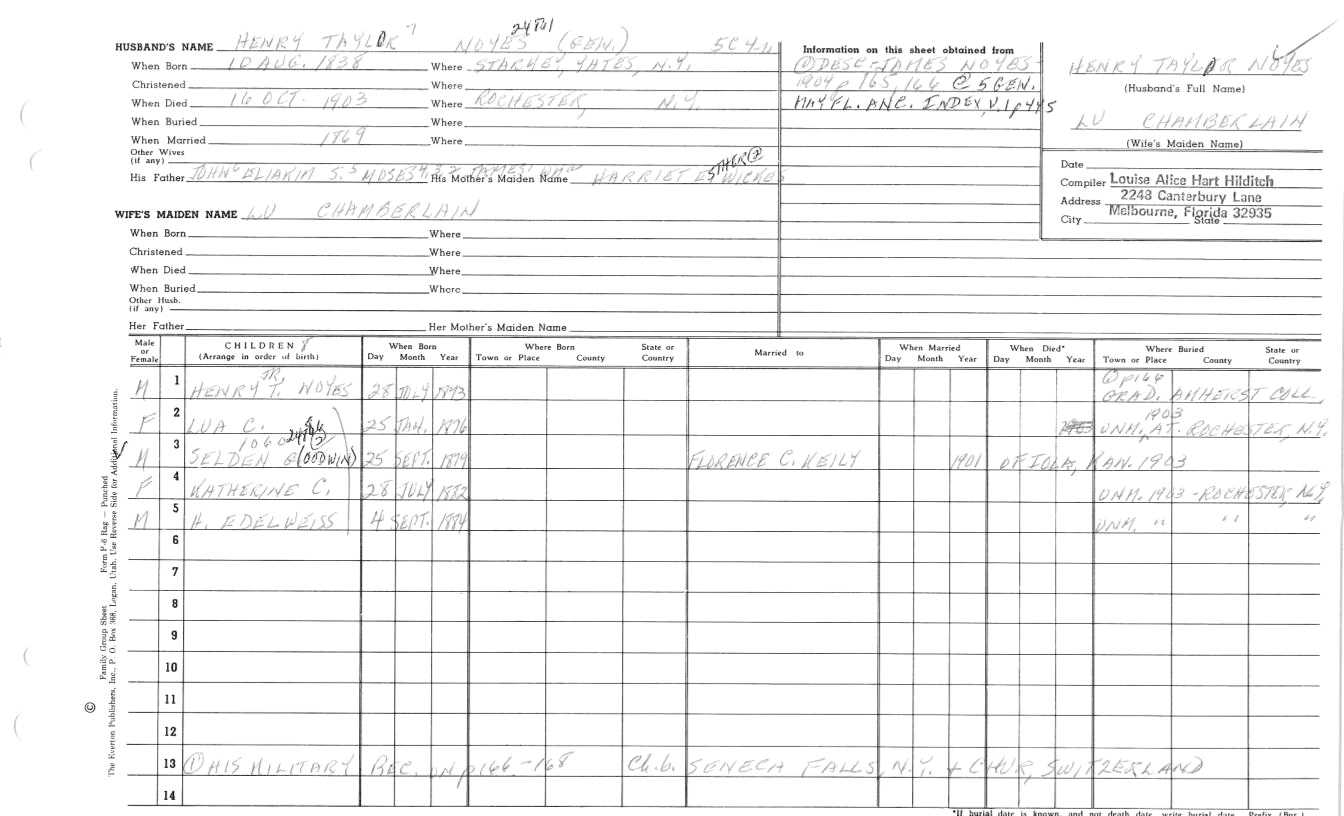 24841
HUSBAND'S NAME HENRY TAYLOR 7 NOYES (GEN.)
When Born 10 AUG. 1838 Where STARKEY, YATES, N.Y.
Christened Where
When Died 16 OCT. 1903 Where ROCHESTER, N.Y.
When Buried Where
When Married 1869 Where
Other Wives
(if any)
His Father JOHN ELIAKIM MOSES His Mother's Maiden Name HARRIET ESTHER WICKES
WIFE'S MAIDEN NAME LU CHAMBERLAIN
When Born Where
Christened Where
When Died Where
When Buried Where
Other Husb.
(if any)
Her Father Her Mother's Maiden Name
Information on this sheet obtained from
① DESC. JAMES NOYES
1904 p 165, 166 @ 5 GEN.
MAYFL. ANC. INDEX, V.1 p 445
HENRY TAYLOR NOYES
(Husband's Full Name)
LU CHAMBERLAIN
(Wife's Maiden Name)
Date
Compiler Louise Alice Hart Hilditch
Address 2248 Canterbury Lane
City Melbourne, Florida 32935 State
Male or Female CHILDREN (Arrange in order of birth) When Born Day Month Year Where Born Town or Place County State or Country Married to When Married Day Month Year When Died* Day Month Year Where Buried Town or Place County State or Country
① p166
M 1 HENRY T. JR. NOYES 28 JULY 1873 GRAD. AMHERST COLL.
F 2 LUA C. 25 JAN. 1876 UNM. 1903 AT ROCHESTER, N.Y.
M 3 SELDEN G(OODWIN) 25 SEPT. 1879 FLORENCE C. KEILY 1901 OF IOLA, KAN. 1903
F 4 KATHERINE C. 28 JULY 1882 UNM. 1903 - ROCHESTER, N.Y.
M 5 H. EDELWEISS 4 SEPT. 1884 UNM. " " "
6
7
8
9
10
11
12
13 ① HIS MILITARY REC. ON p166-168 Ch.b. SENECA FALLS, N.Y. + CHUR, SWITZERLAND
14
*If burial date is known, and not death date, write burial date
© Family Group Sheet Form P-6 Rag — Punched
The Everton Publishers, Inc., P. O. Box 368, Logan, Utah. Use Reverse Side for Additional Information.